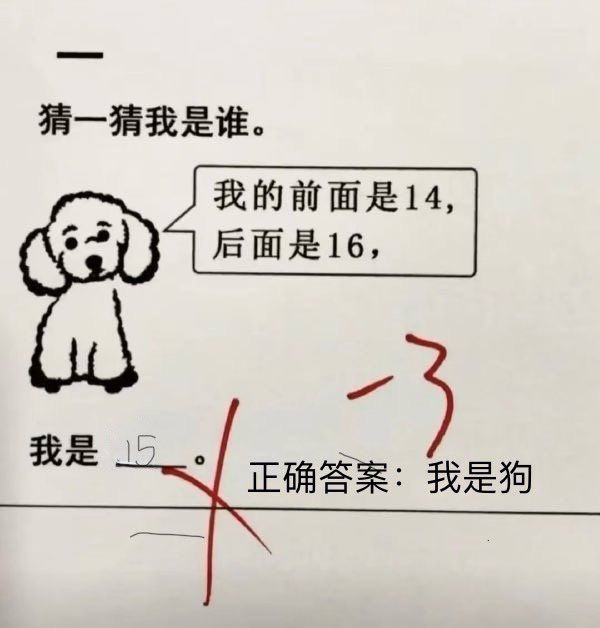 一
猜一猜我是谁。
我的前面是14,
后面是16，
-3
我是 15 。
正确答案：我是狗